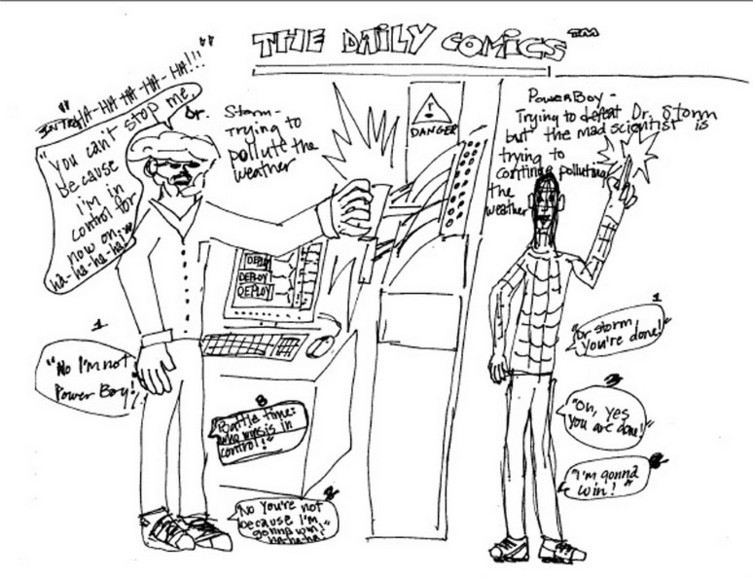 THE DAILY COMICS™
INTRO
"HA-HA HA-HA-HA!!!"
"You can't stop me
because
I'm in
control for
now on,
ha-ha-ha-ha!"
Dr.
Storm-
Trying to
pollute the
weather
DANGER
PowerBoy -
Trying to defeat Dr. Storm
but the mad scientist is
trying to
continue polluting
the
weather
DEPLOY
DEPLOY
DEPLOY
1
"Dr Storm,
you're done!"
1
"No I'm not
Power Boy!"
3
"Oh, yes
you are done!"
"Battle time:
who wins is in
control!"
2
"No You're not
because I'm
gonna win!"
ha-ha-ha!
"I'm gonna
win!"